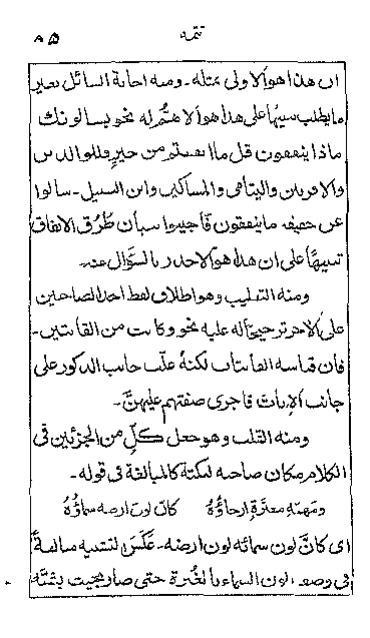 تتمه ٨٥
ان هذا هو الاولى بمثله ۔ ومنه اجابة السائل بغير
ما يطلب تنبيها على هذا هو الاهتم له نحو يسالونك
ماذا ينفقون قل ما انفقتم من خير فللوالدين
والاقربين واليتامى والمساكين وابن السبيل ۔ سالوا
عن حقيقة ما ينفقون فاجيبوا ببيان طرق الانفاق
تنبيها على ان هذا هو الاجدر بالسؤال عنه ۔
ومنه التغليب وهو اطلاق لفظ احد الصاحبين
على الاخر ترجيحا له عليه نحو وكانت من القانتين ۔
فان قياسه القانتات لكنه غلب جانب الذكور على
جانب الاناث فاجرى صفتهم عليهن ۔
ومنه القلب وهو جعل كل من الجزئين فى
الكلام مكان صاحبه لنكتة كالمبالغة فى قوله ۔
ومهمه مغبرة ارجاؤه كان لون ارضه سماؤه
اى كان لون سمائه لون ارضه ۔ عكس التشبيه مبالغة
فى وصف لون السماء بالغبرة حتى صار بحيث يشبه